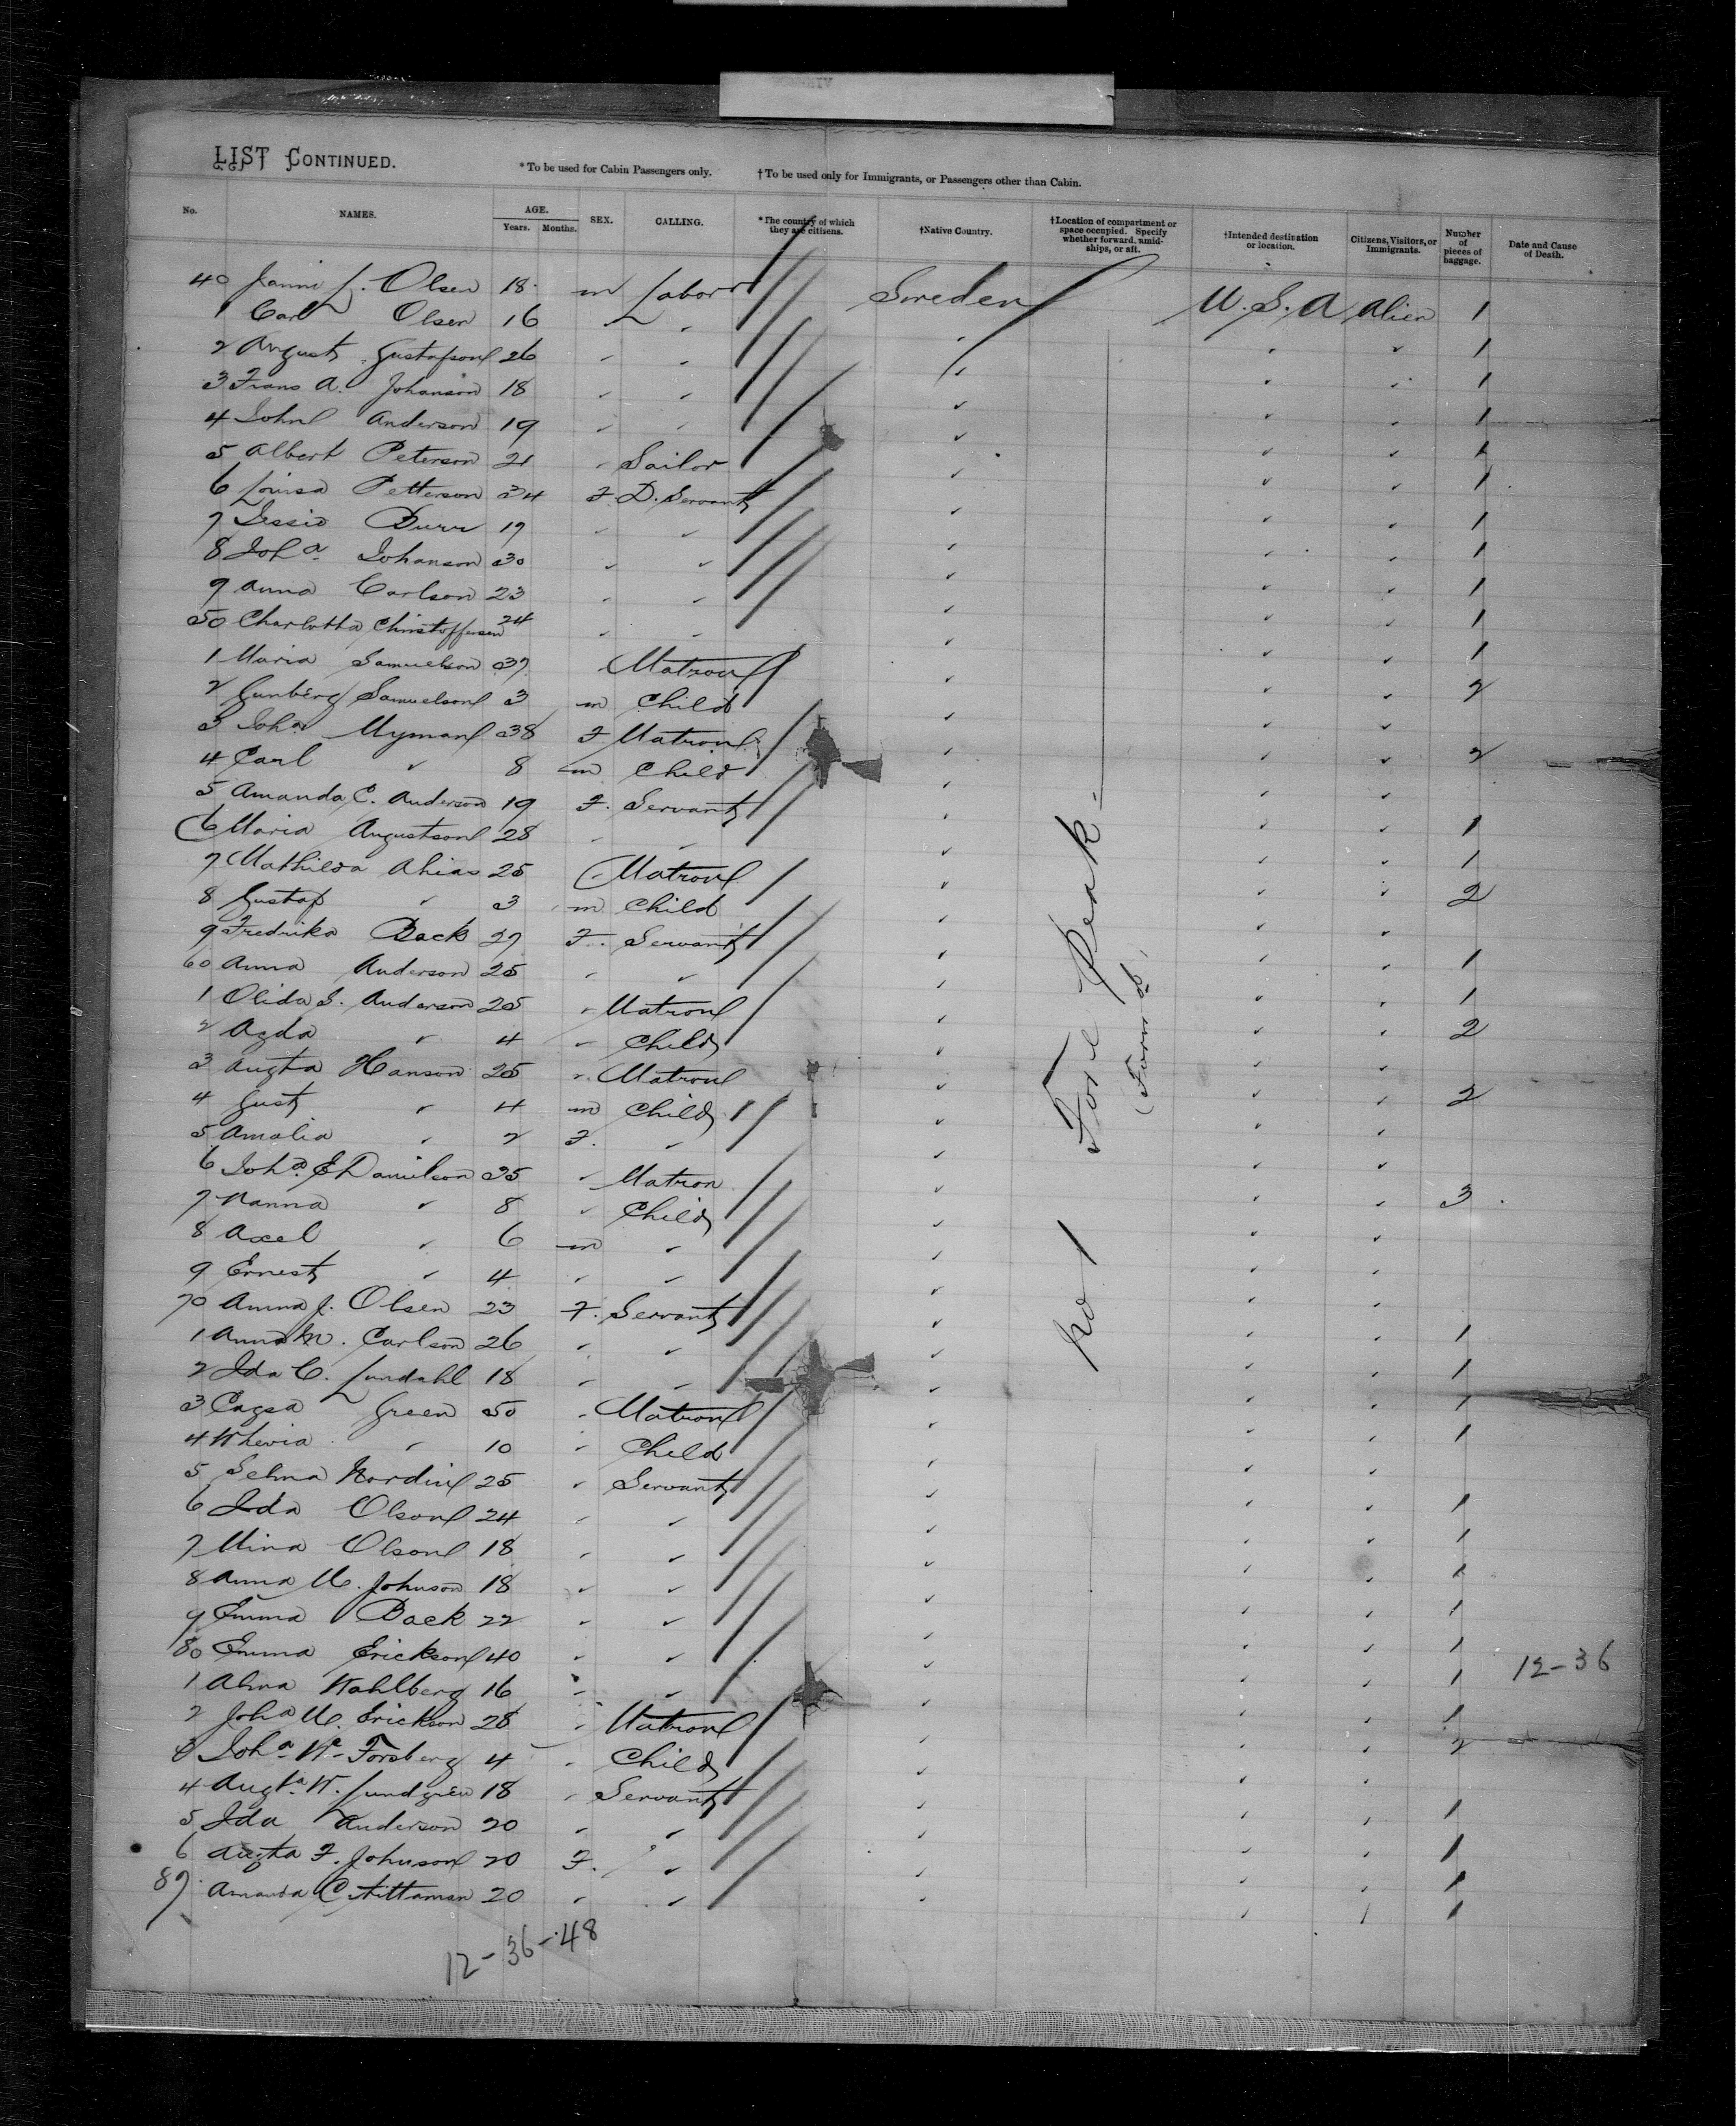 LIST CONTINUED.
*To be used for Cabin Passengers only. †To be used only for Immigrants, or Passengers other than Cabin.
No. NAMES. AGE. Years. Months. SEX. CALLING. *The country of which they are citizens. †Native Country. †Location of compartment or space occupied. Specify whether forward, amidships, or aft. †Intended destination or location. Citizens, Visitors, or Immigrants. Number of pieces of baggage. Date and Cause of Death.
40 L. Olsen 18 m Labor Sweden U.S.A Alien 1
1 Carl Olsen 16 " " " " " 1
2 August Gustafson 26 " " " " " 1
3 Frans A. Johanson 18 " " " " " 1
4 John Anderson 19 " " " " " 1
5 Albert Peterson 21 " Sailor " " " 1
6 Louisa Petterson 34 F. D. Servant " " " 1
7 Jessie Burr 19 " " " " " 1
8 Joha Johanson 30 " " " " " 1
9 Anna Carlson 23 " " " " " 1
50 Charlotta Christoffersen 24 " " " " " 1
1 Maria Samuelson 37 " Matron " " " 2
2 Gunberg Samuelson 3 m Child " " "
3 Joha Nyman 38 F Matron " " " 2
4 Carl " 8 m Child " " "
5 Amanda C. Anderson 19 F. Servant " " " 1
6 Maria Augustson 28 " " " " " 1
7 Mathilda Ahias 25 " Matron " " " 2
8 Gustaf " 3 m Child " " "
9 Fredrika Back 27 F. Servant " " " 1
60 Anna Anderson 25 " " " " " 1
1 Olida S. Anderson 25 " Matron " " " 2
2 Agda " 4 " Child " " "
3 Augta Hanson 25 " Matron " " " 2
4 Gust " 4 m Child " " "
5 Amalia " 2 F. " " " "
6 Joha E Danielson 35 " Matron " " " 3
7 Nanna " 8 " Child " " "
8 Axel " 6 m " " " "
9 Ernest " 4 " " " " "
70 Anna J. Olsen 23 F. Servant " " " 1
1 Anna M. Carlson 26 " " " " " 1
2 Ida C. Lundahl 18 " " " " " 1
3 Cagsa Green 50 " Matron " " " 1
4 " 10 " Child " " "
5 Selma Nordin 25 " Servant " " " 1
6 Ida Olson 24 " " " " " 1
7 Mina Olson 18 " " " " " 1
8 Anna M. Johnson 18 " " " " " 1
9 Emma Back 22 " " " " " 1
80 Emma Erickson 40 " " " " " 1 12-36
1 Alma Wahlberg 16 " " " " " 1
2 Joha M. Erickson 28 " Matron " " " 2
3 Joha Wa Forsberg 4 " Child " " "
4 Augta W. Lundgren 18 " Servant " " " 1
5 Ida Anderson 20 " " " " " 1
6 Augta F. Johnson 20 F. " " " " 1
87 Amanda C 20 " " " " " 1
No 1 Fore Peak
12-36-48